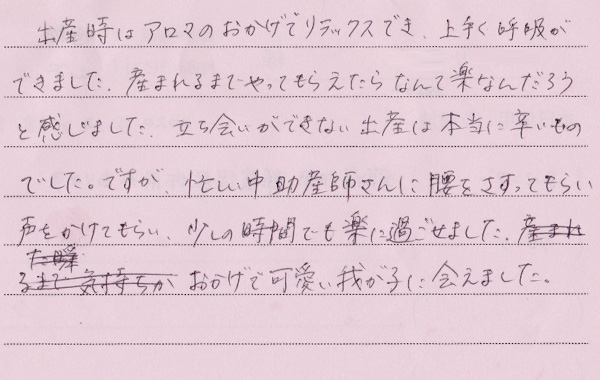 出産時はアロマのおかげでリラックスでき、上手く呼吸が
できました。産まれるまでやってもらえたらなんて楽なんだろう
と感じました。立ち会いができない出産は本当に辛いもの
でした。ですが、忙しい中助産師さんに腰をさすってもらい
声をかけてもらい、少しの時間でも楽に過ごせました。産まれ
た瞬
るまで気持ちが おかげで可愛い我が子に会えました。